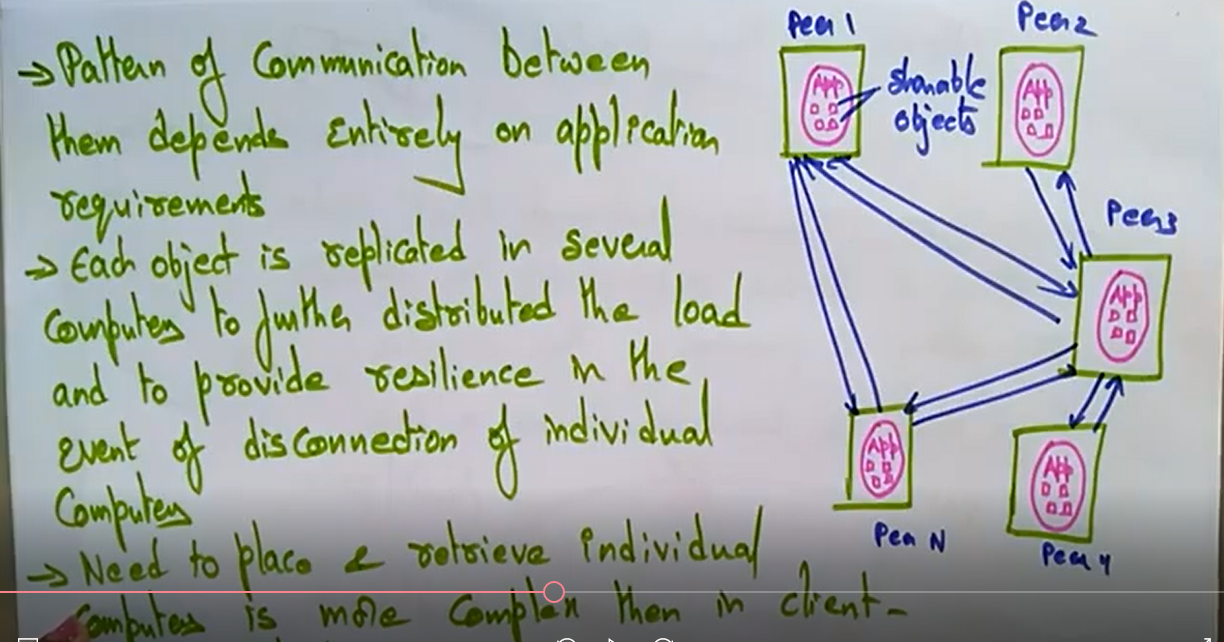 → Pattern of Communication between
them depends Entirely on application
requirements
→ Each object is replicated in several
Computers to further distributed the load
and to provide resilience in the
Event of disconnection of individual
Computers
→ Need to place & retrieve individual
Computers is more Complex then in client-
Peer 1
App
sharable
objects
Peer 2
App
Peer 3
App
App
Peer N
App
Peer 4